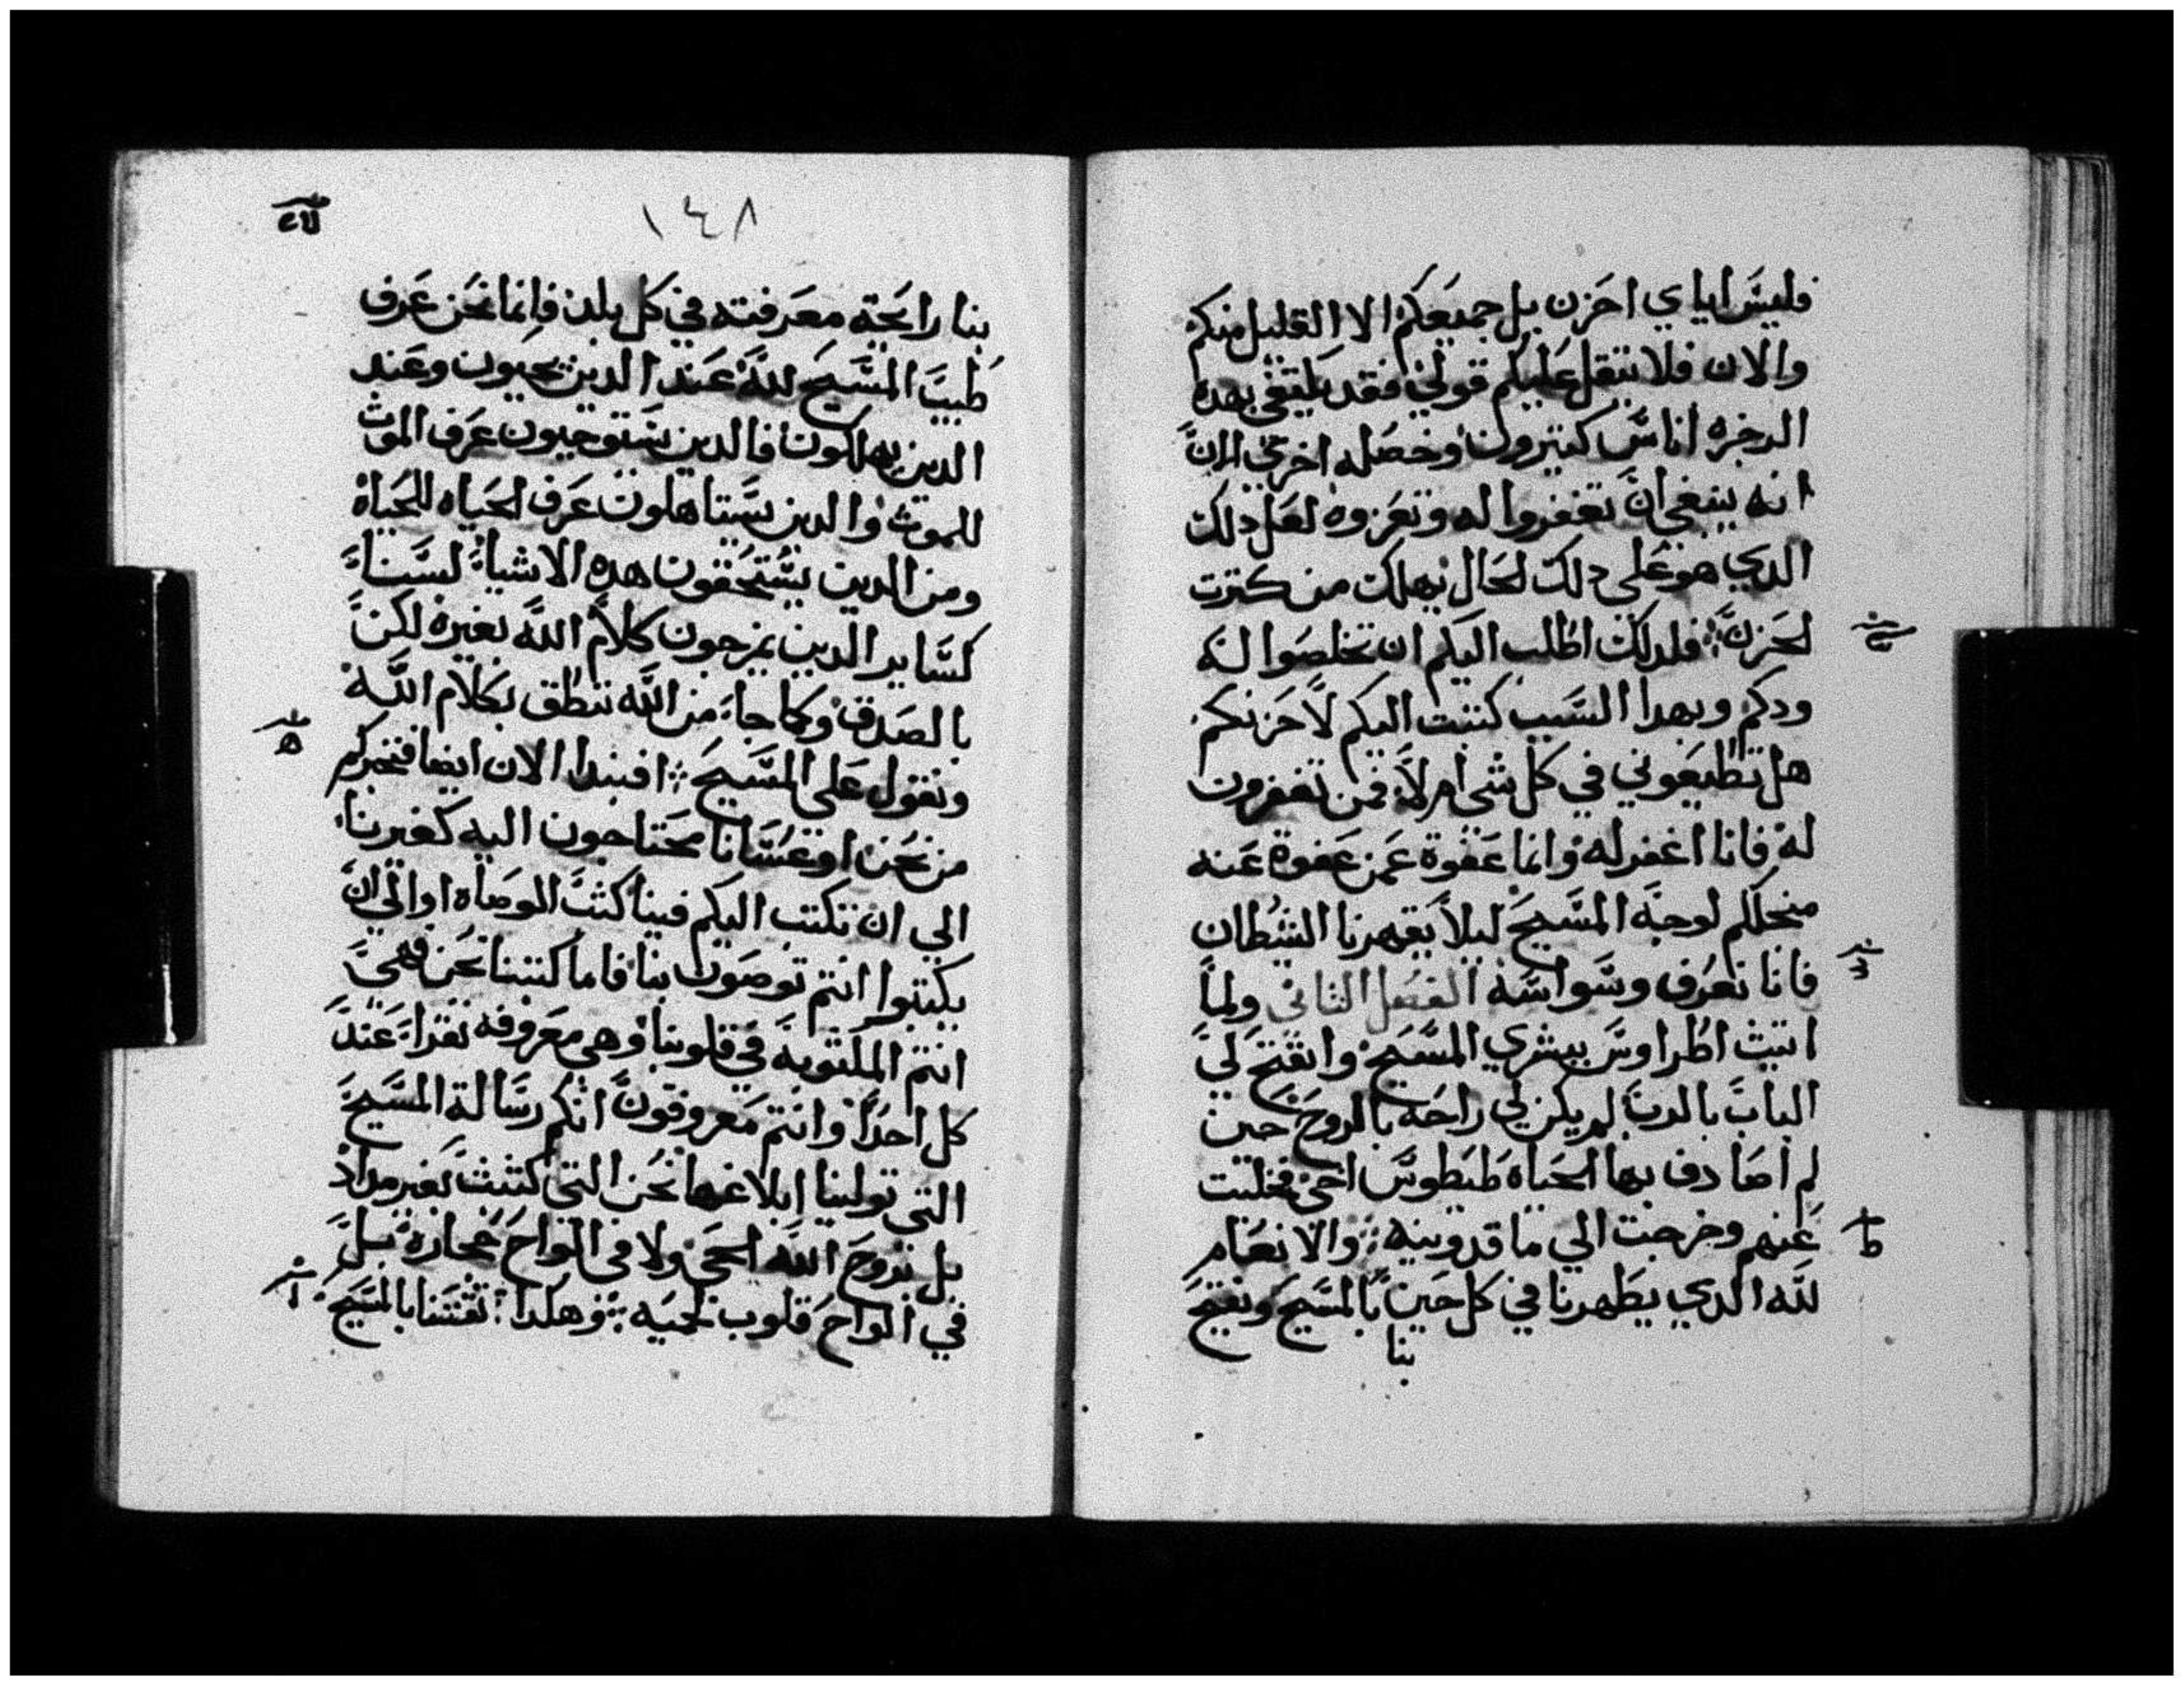 فليس اياي احزن بل جميعكم الا القليل منكم
والان فلا يتقل عليكم قولي فقد يكتفي بهده
الزجره اناس كتيرون وخصله اخري الان
انه ينبغي ان تغفروا له وتعزوه لعل دلك
الدي هو علي دلك الحال يهلك من كترت
الحزن فلدلك اطلب اليكم ان تخلصوا له
ودكم وبهدا السبب كتبت اليكم لاحزنكم
هل تطيعوني في كل شي ام لا فمن تغفرون
له فانا اغفر له وانما عفوة عمن عفوة عنه
منحلكم لوجه المسيح ليلا يقهرنا الشطان
فانا نعرف وسواسه الفصل الثاني ولما
اتيت اطراوس ببشري المسيح وانفتح لي
الباب بالدب لم يكن لي راحه بالروح حين
لم اصادف بها الحياه طيطوس اخي فخليت
عنهم وخرجت الي ماقدونيه والانعام
لله الدي يظهرنا في كل حين بالمسيح ويفتح
بنا
١٤٨
بنا رايحة معرفته في كل بلد فانما نحن عرف
طيب المسيح لله عند الدين يحيون وعند
الدين يهلكون فالدين يستوجبون عرف الموت
للموت والدين يستاهلون عرف الحياه للحياه
ومن الدين يستحقون هده الاشياء لسنا
كساير الدين يمزجون كلام الله بغيره لكن
بالصدق وكما جاء من الله ننطق بكلام الله
ونقول علي المسيح افنبدا الان ايضا فنخبركم
من نحن او عسانا محتاجون اليه كغيرنا
الي ان نكتب اليكم فينا كتب الوصاه او الي ان
يكتبوا انتم توصون بنا فاما كتبنا نحن فهي
انتم المكتوبه في قلوبنا وهي معروفه تقرا عند
كل احدا وانتم معروفون انكم رسالة المسيح
التي تولينا ابلاغها نحن التي كتبت بغير مداد
بل بروح الله الحي ولا في الواح حجارة بل
في الواح قلوب لحميه وهكدا ثقتنا بالمسيح